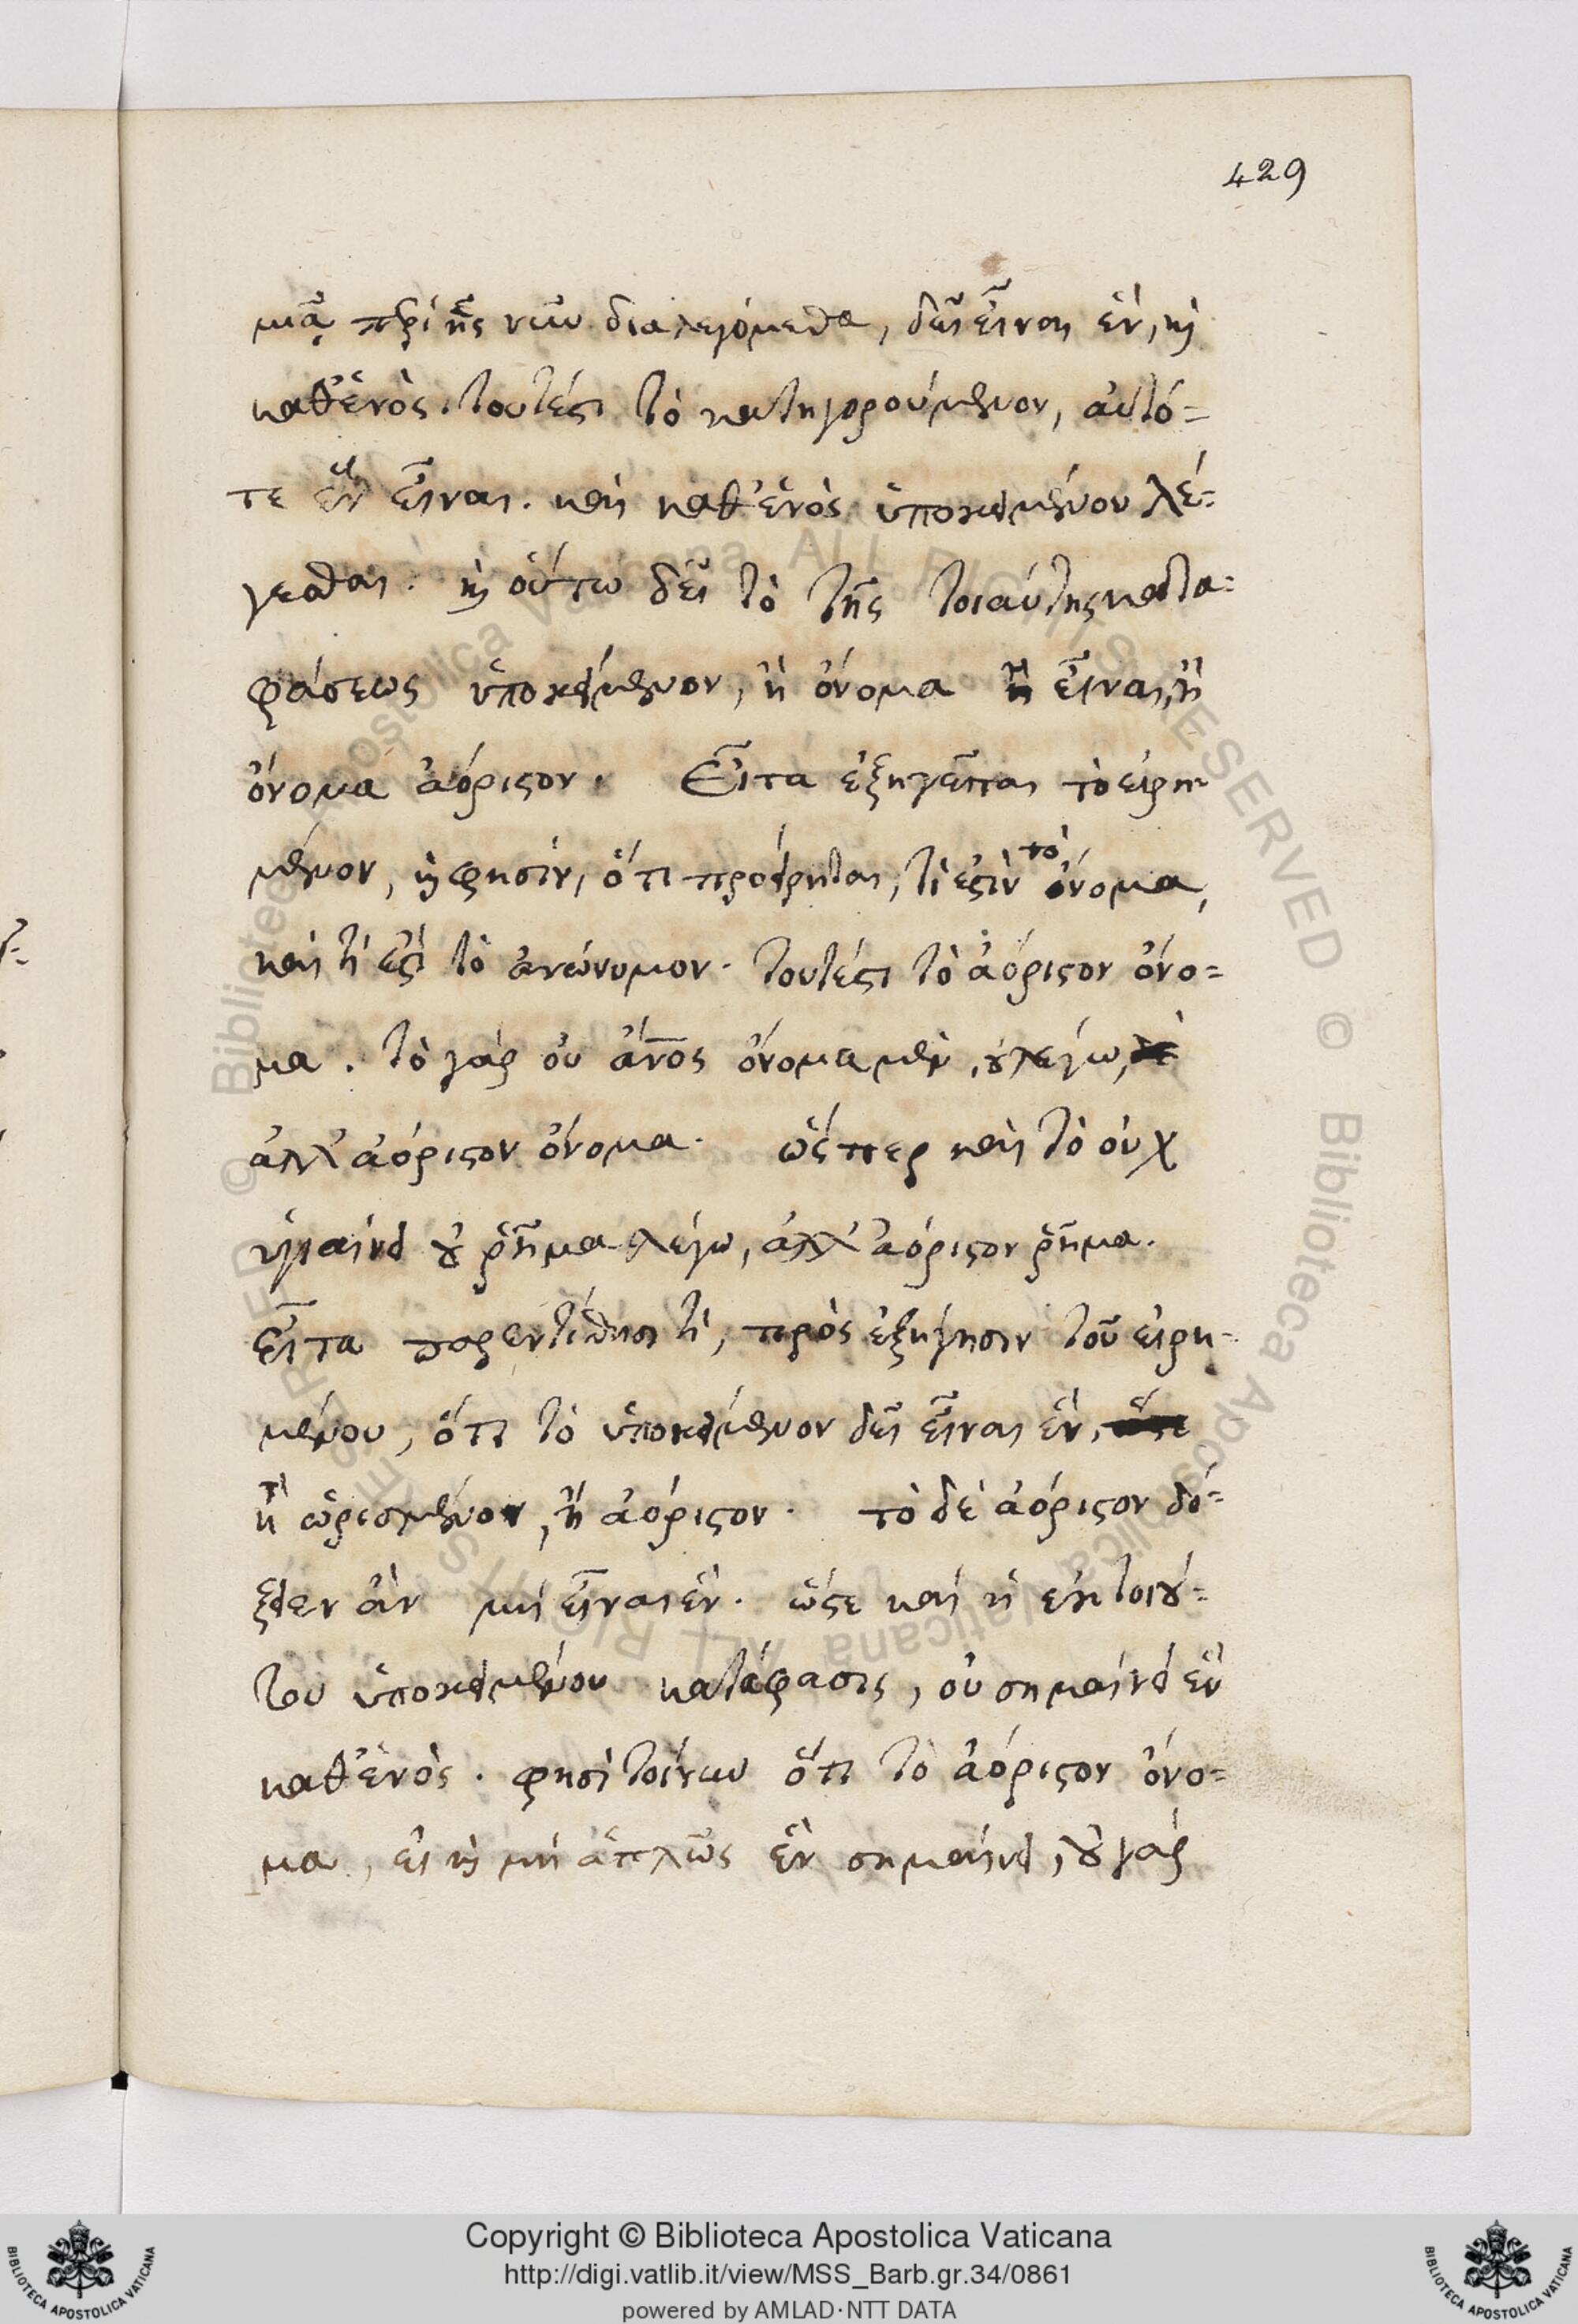 429
μιᾷ περὶ ἧς νῦν διαλεγόμεθα, δεῖ εἶναι ἓν, καὶ
καθ' ἑνὸς. τουτέστι τὸ κατηγορούμενον, αὐτό=
τε ἓν εἶναι. καὶ καθ' ἑνὸς ὑποκειμένου λέ=
γεσθαι. καὶ οὕτω δεῖ τὸ τῆς τοιαύτης κατα=
φάσεως ὑποκείμενον, ἢ ὄνομα εἶναι, ἢ
ὄνομα ἀόριστον. Εἶτα ἐξηγεῖται τὸ εἰρη-
μένον, καὶ φησὶν, ὅτι προείρηται, τί ἐστὶν τὸ ὄνομα,
καὶ τί ἐστὶ τὸ ἀνώνυμον. τουτέστι τὸ ἀόριστον ὄνο=
μα. τὸ γὰρ οὐ ἄνος ὄνομα μὲν, οὐ λέγω,
ἀλλ' ἀόριστον ὄνομα. ὥσπερ καὶ τὸ οὐχ
ὑγιαίνει οὐ ῥῆμα λέγω, ἀλλ' ἀόριστον ῥῆμα.
εἶτα παρεντίθησί τι, πρὸς ἐξήγησιν τοῦ εἰρη-
μένου, ὅτι τὸ ὑποκείμενον δεῖ εἶναι ἓν,
ἢ ὡρισμένον, ἢ ἀόριστον. τὸ δὲ ἀόριστον δό=
ξειεν ἂν μὴ εἶναι ἓν. ὥστε καὶ ἡ ἐκ τοιού=
του ὑποκειμένου κατάφασις, οὐ σημαίνει ἓν
καθ' ἑνὸς. φησὶ τοίνυν ὅτι τὸ ἀόριστον ὄνο=
μα, εἰ καὶ μὴ ἁπλῶς ἓν σημαίνει, οὐ γὰρ
Copyright © Biblioteca Apostolica Vaticana
http://digi.vatlib.it/view/MSS_Barb.gr.34/0861
powered by AMLAD·NTT DATA